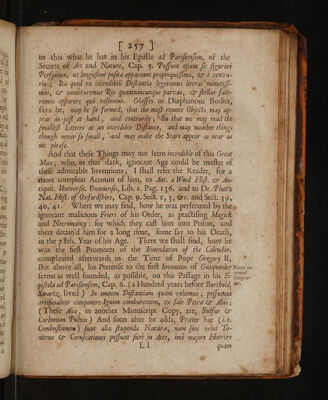 [ 257 ]
to this what he has in his Epistle ad Parisiensem, of the
Secrets of Art and Nature, Cap. 5. Possunt etiam sic figurari
Perspicua, ut longissimè posita appareant propinquissima, & è contra-
ria; Ita quod ex incredibili Distantia legeremus literas minutissi-
mas, & numeraremus Res quantumcunque parvas, & stellas face-
remus apparere quò vellemus. Glasses or Diaphanous Bodies,
says he, may be so formed, that the most remote Objects may ap-
pear as just at hand, and contrarily; So that we may read the
smallest Letters at an incredible Distance, and may number things
though never so small, and may make the Stars appear as near as
we please.
And that these Things may not seem incredible of this Great
Man; who, in that dark, ignorant Age could be master of
these admirable Inventions; I shall refer the Reader, for a
more compleat Account of him, to Ant. a Wood Hist. & An-
tiquit. Universit. Oxoniensis, Lib. 1. Pag. 136. and to Dr. Plott's
Nat. Hist. of Oxfordshire, Cap. 9. Sect. 2, 3, &c. and Sect. 39,
40, 41. Where we may find, how he was persecuted by the
ignorant malicious Friers of his Order, as practising Magick
and Necromancy: for which they cast him into Prison, and
there detain'd him for a long time, some say to his Death,
in the 78th. Year of his Age. There we shall find, how he
was the first Promoter of the Emendation of the Calendar,
compleated afterwards in the Time of Pope Gregory
But above all, his Pretense to the first Invention of Gunpowder
seems as well founded, as possible, on this Passage in his E-
pistola ad Parisiensem, Cap. 6. (a Hundred years before Barthold.
Swartz, lived) In omnem Distantiam quam volumus, possumus
artificialiter componere Ignem comburentem, ex sale Petra & Aliis;
(These Alia, in another Manuscript Copy, are, Sulfur &
Carbonum Pulvis) And soon after he adds, Præter hæc (i. e.
Combustionem) sunt alia stupenda Naturæ, nam soni velut To-
nitrus & Coruscationes possunt fieri in Aere, imò majore Horrore
L l quam